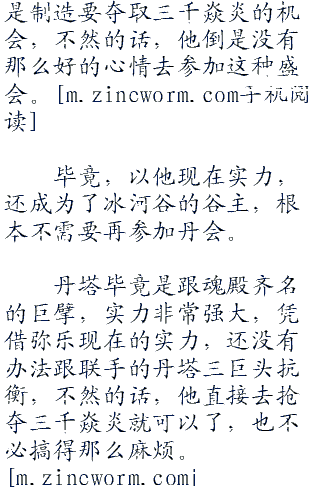 是制造要夺取三千焱炎的机
会，不然的话，他倒是没有
那么好的心情去参加这种盛
会。[m.zincworm.com手机阅
读]
毕竟，以他现在实力，
还成为了冰河谷的谷主，根
本不需要再参加丹会。
丹塔毕竟是跟魂殿齐名
的巨擘，实力非常强大，凭
借弥乐现在的实力，还没有
办法跟联手的丹塔三巨头抗
衡，不然的话，他直接去抢
夺三千焱炎就可以了，也不
必搞得那么麻烦。
[m.zincworm.com]